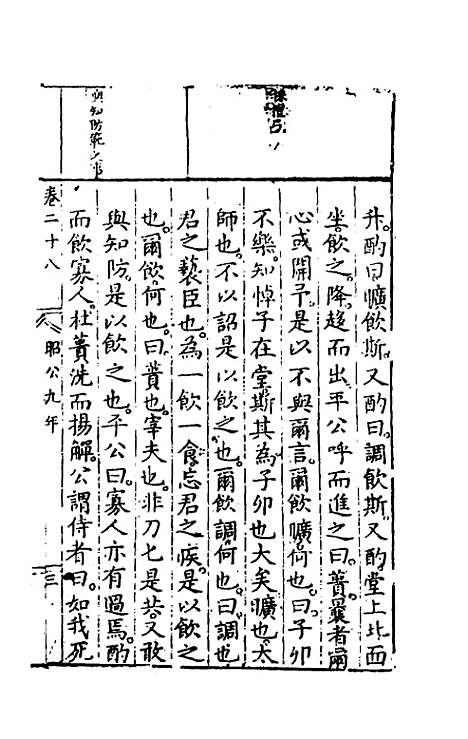 升。酌曰。曠飲斯。又酌曰。調飲斯。又酌。堂上北面
坐飲之。降。趨而出。平公呼而進之曰。蕢。曩者爾
心或開予。是以不與爾言。爾飲曠何也。曰。子卯
不樂。知悼子在堂。斯其為子卯也大矣。曠也。太
師也。不以詔。是以飲之也。爾飲調何也。曰。調也
君之褻臣也。為一飲一食。忘君之疾。是以飲之
也。爾飲何也。曰。蕢也。宰夫也。非刀匕是共。又敢
與知防。是以飲之也。平公曰。寡人亦有過焉。酌
而飲寡人。杜蕢洗而揚觶。公謂侍者曰。如我死
卷二十八 昭公九年 三
與知防範之事